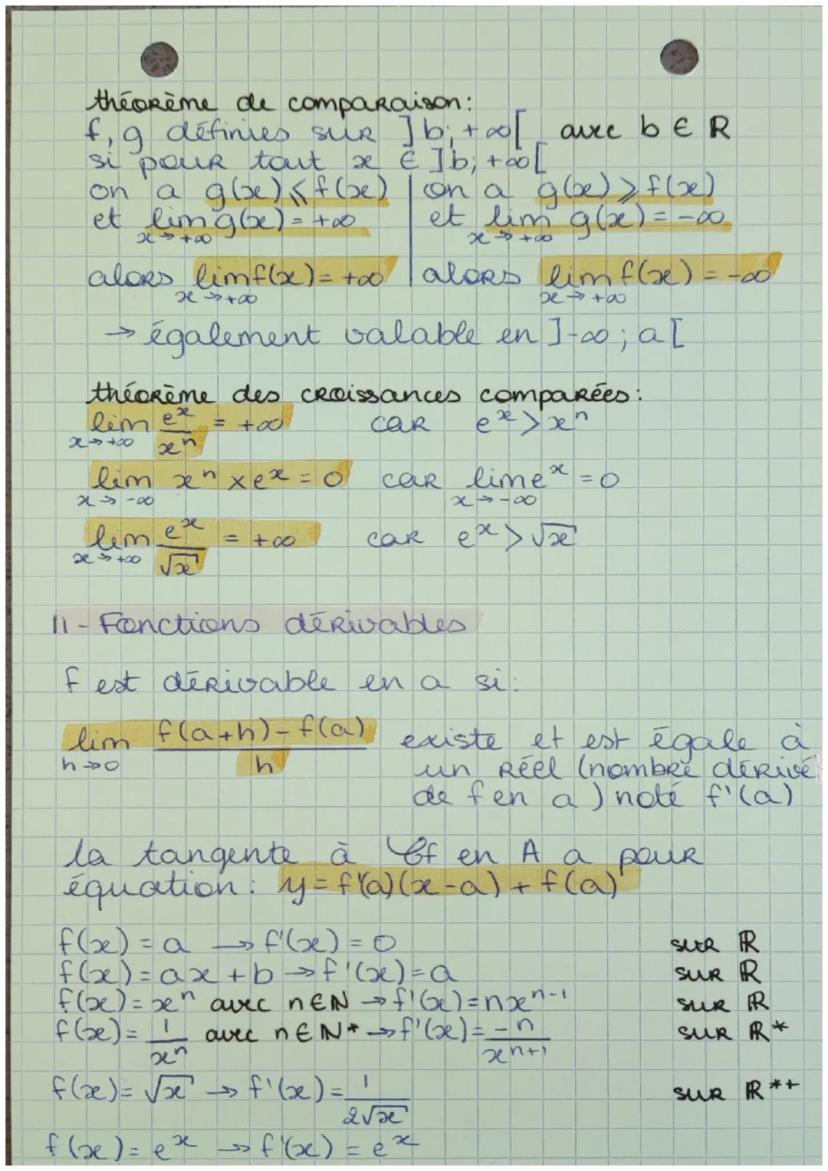 théorème de comparaison:
f, g définies sur ]b; +∞[ avec b ∈ R
si pour tout x ∈ ]b; +∞[
on a g(x) ⩽ f(x) | on a g(x) ⩾ f(x)
et lim g(x) = +∞ | et lim g(x) = -∞
x → +∞ x → +∞
alors lim f(x) = +∞ | alors lim f(x) = -∞
x → +∞ x → +∞
→ également valable en ]-∞; a[
théorème des croissances comparées:
lim e^x/x^n = +∞ car e^x > x^n
x → +∞
lim x^n × e^x = 0 car lim e^x = 0
x → -∞ x → -∞
lim e^x/√x = +∞ car e^x > √x
x → +∞
II - Fonctions dérivables
f est dérivable en a si:
lim (f(a+h) - f(a))/h existe et est égale à
h → 0 un réel (nombre dérivé
de f en a) noté f'(a)
la tangente à 𝒞f en A a pour
équation: y = f'(a)(x-a) + f(a)
f(x) = a → f'(x) = 0 sur ℝ
f(x) = ax + b → f'(x) = a sur ℝ
f(x) = x^n avec n ∈ N → f'(x) = nx^(n-1) sur ℝ
f(x) = 1/x^n avec n ∈ N* → f'(x) = -n/x^(n+1) sur ℝ*
f(x) = √x → f'(x) = 1/(2√x) sur ℝ*+
f(x) = e^x → f'(x) = e^x